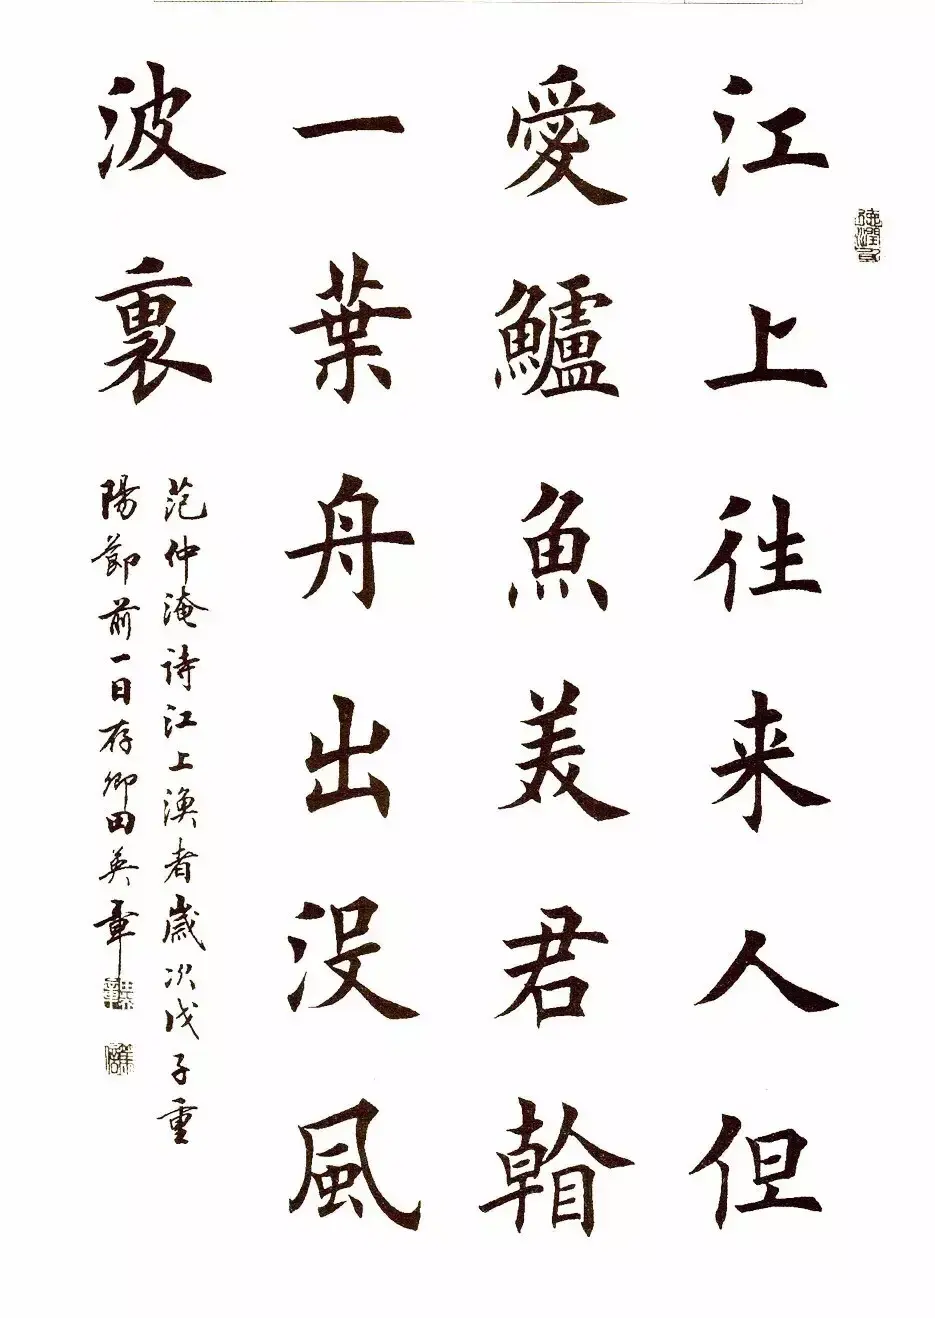 江上徃来人但
愛鱸魚美君看
一葉舟出没風
波裏
范仲淹诗江上渔者歲次戊子重
陽節前一日存卿田英章